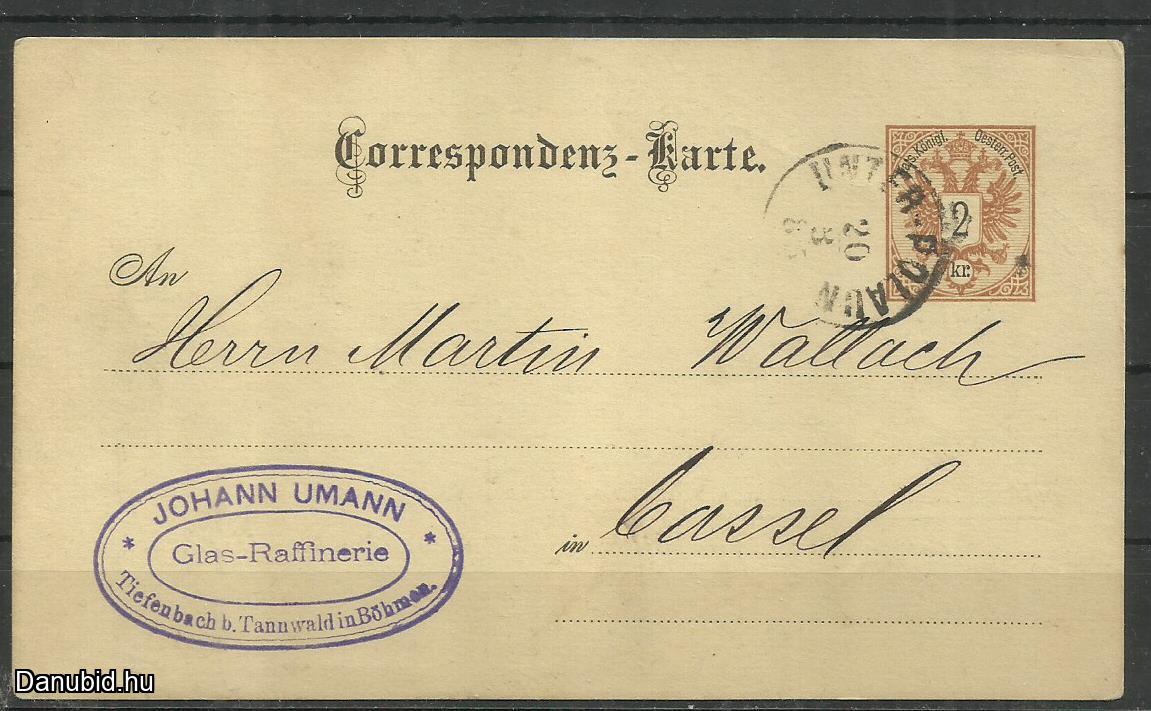 Correspondenz-Karte.
Kais. Königl. Oesterr. Post.
2
kr.
UNTER-POLAUN
20
3
An
Herrn Martin Wallach
in Cassel
JOHANN UMANN
* Glas-Raffinerie *
Tiefenbach b. Tannwald in Böhmen.
Danubid.hu